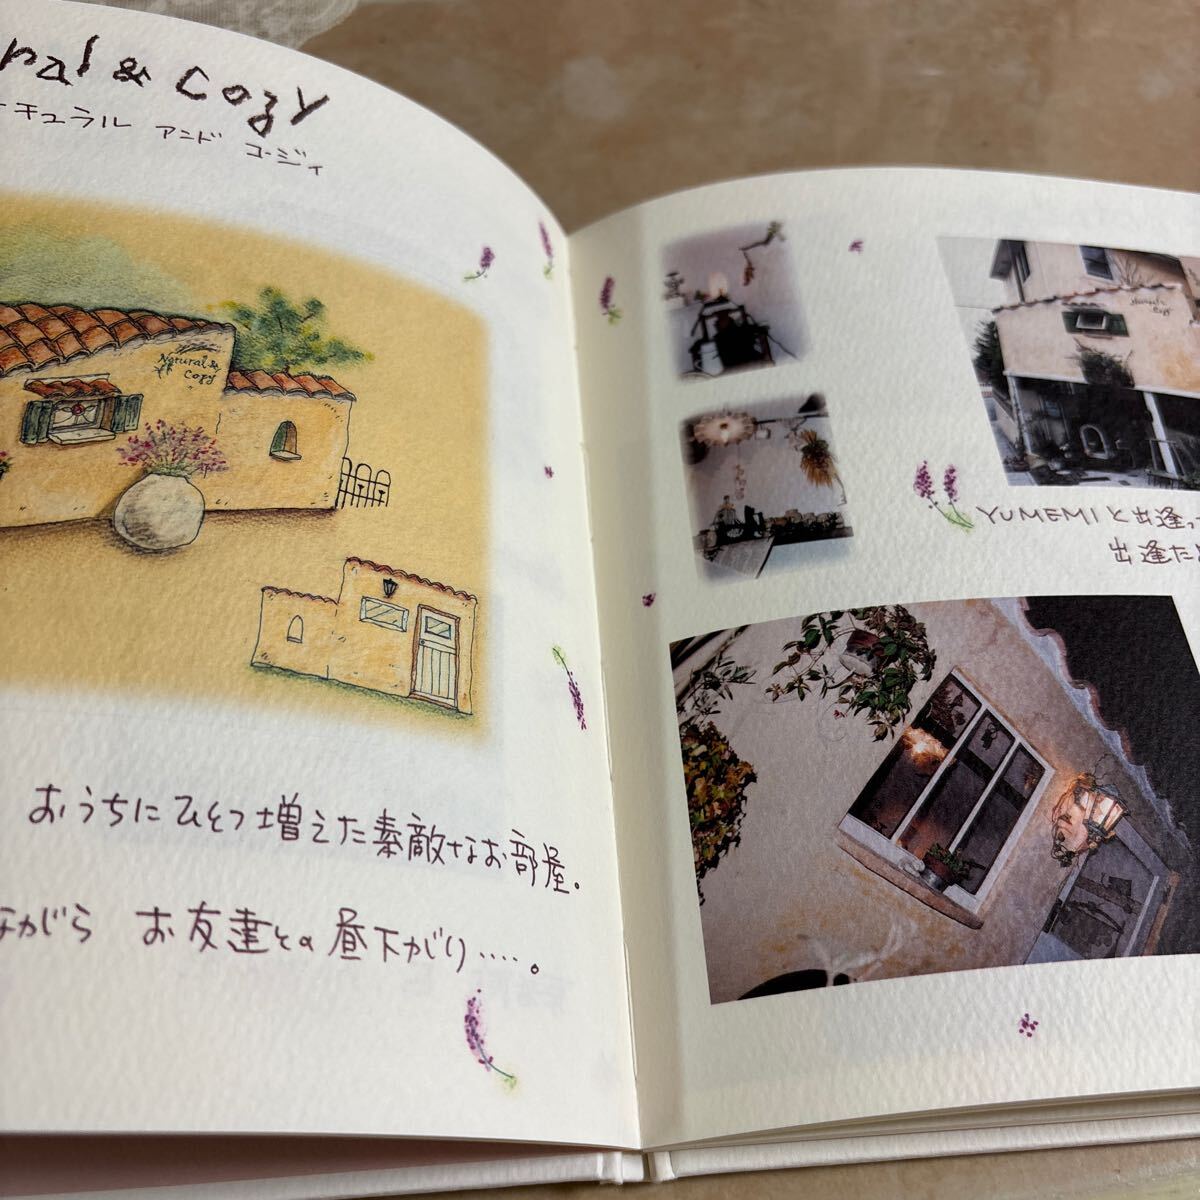 ral & Cozy
ーチュラル アンド コージィ
Natural &
Cozy
おうちにひとつ増えた素敵なお部屋。
ながら お友達との昼下がり……。
Natural &
Cozy
YUMEMIと出逢っ
出逢た